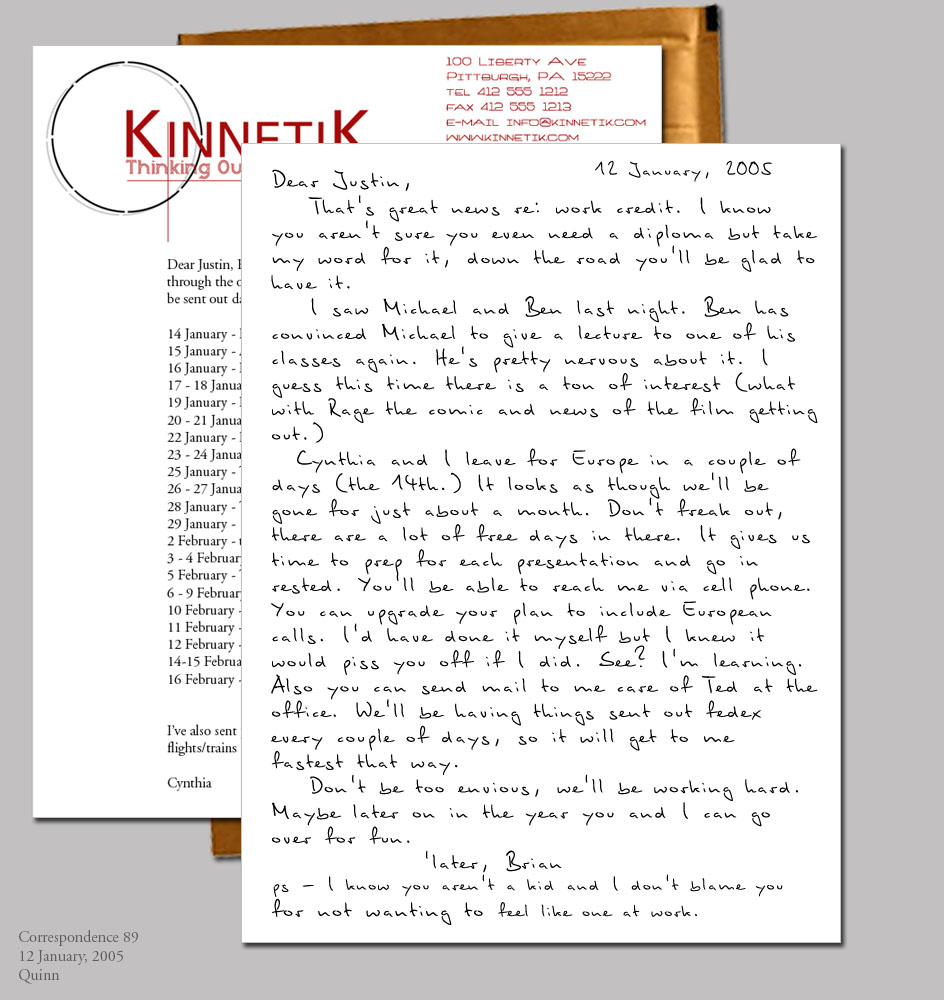 100 Liberty Ave
Pittsburgh, PA 15222
tel 412 555 1212
fax 412 555 1213
e-mail info@kinnetik.com
www.kinnetik.com
KINNETIK
Thinking Ou
Dear Justin,
through the
be sent out
14 January -
15 January -
16 January -
17 - 18 Janua
19 January -
20 - 21 Janua
22 January -
23 - 24 Janua
25 January -
26 - 27 Janua
28 January -
29 January -
2 February -
3 - 4 Februar
5 February -
6 - 9 Februar
10 February -
11 February -
12 February -
14-15 Februa
16 February -
I've also sent
flights/trains
Cynthia
12 January, 2005
Dear Justin,
That's great news re: work credit. I know
you aren't sure you even need a diploma but take
my word for it, down the road you'll be glad to
have it.
I saw Michael and Ben last night. Ben has
convinced Michael to give a lecture to one of his
classes again. He's pretty nervous about it. I
guess this time there is a ton of interest (what
with Rage the comic and news of the film getting
out.)
Cynthia and I leave for Europe in a couple of
days (the 14th.) It looks as though we'll be
gone for just about a month. Don't freak out,
there are a lot of free days in there. It gives us
time to prep for each presentation and go in
rested. You'll be able to reach me via cell phone.
You can upgrade your plan to include European
calls. I'd have done it myself but I knew it
would piss you off if I did. See? I'm learning.
Also you can send mail to me care of Ted at the
office. We'll be having things sent out fedex
every couple of days, so it will get to me
fastest that way.
Don't be too envious, we'll be working hard.
Maybe later on in the year you and I can go
over for fun.
'later, Brian
ps - I know you aren't a kid and I don't blame you
for not wanting to feel like one at work.
Correspondence 89
12 January, 2005
Quinn